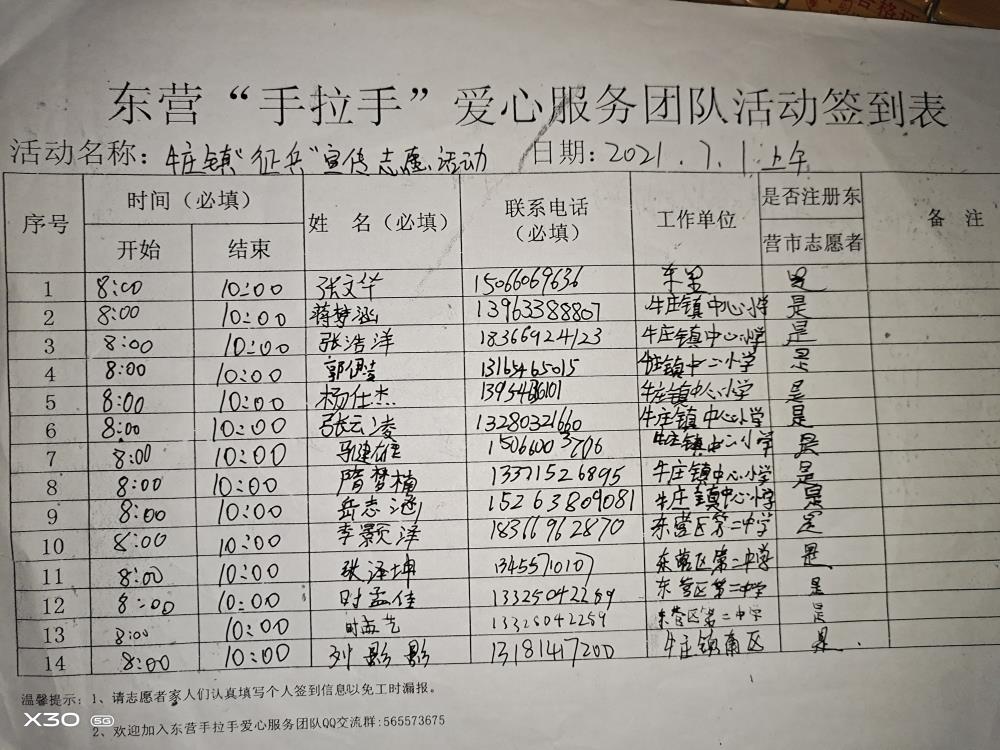 东营“手拉手”爱心服务团队活动签到表
活动名称：牛庄镇“征兵”宣传志愿活动 日期：2021.7.1上午
序号 时间（必填） 姓 名（必填） 联系电话（必填） 工作单位 是否注册东营市志愿者 备 注
开始 结束
1 8:00 10:00 张文华 15066069636 是
2 8:00 10:00 蒋梦涵 13963388807 牛庄镇中心小学 是
3 8:00 10:00 张浩洋 18366924123 牛庄镇中心小学 是
4 8:00 10:00 13165465015 牛庄镇中心小学 是
5 8:00 10:00 杨仕杰 牛庄镇中心小学 是
6 8:00 10:00 张云凌 13280321660 牛庄镇中心小学 是
7 8:00 10:00 马建雄 15066003706 牛庄镇中心小学 是
8 8:00 10:00 隋梦楠 13371526895 牛庄镇中心小学 是
9 8:00 10:00 岳志涵 15263809081 牛庄镇中心小学 是
10 8:00 10:00 李景泽 18366962870 东营区第二中学 是
11 8:00 10:00 张泽坤 13455710107 东营区第二中学 是
12 8:00 10:00 时孟佳 13325042259 东营区第二中学 是
13 8:00 10:00 时孟艺 13326042259 东营区第二中学 是
14 8:00 10:00 刘影影 13181417200 牛庄镇南区 是
温馨提示：1、请志愿者家人们认真填写个人签到信息以免工时漏报。
2、欢迎加入东营手拉手爱心服务团队QQ交流群：565573675
X30 5G